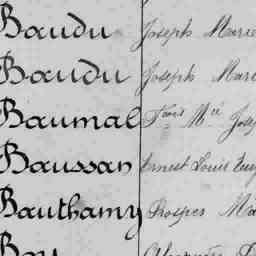 Baudu Joseph Marie
Baudu Joseph Mari
Baumal Fçois Mie Jose
Baussan Ernest Louis Eug
Bauthamy Prosper Ma